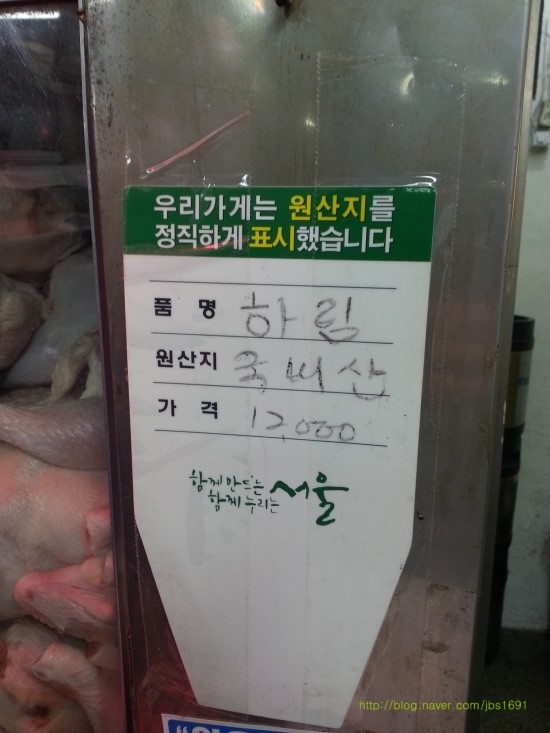 우리가게는 원산지를
정직하게 표시했습니다
품 명 하림
원산지 국내산
가 격 12,000
함께 만드는
함께 누리는 서울
http://blog.naver.com/jbs1691